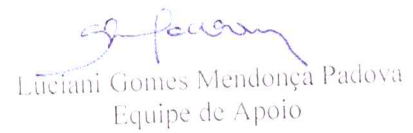 Luciani Gomes Mendonça Padova
Equipe de Apoio